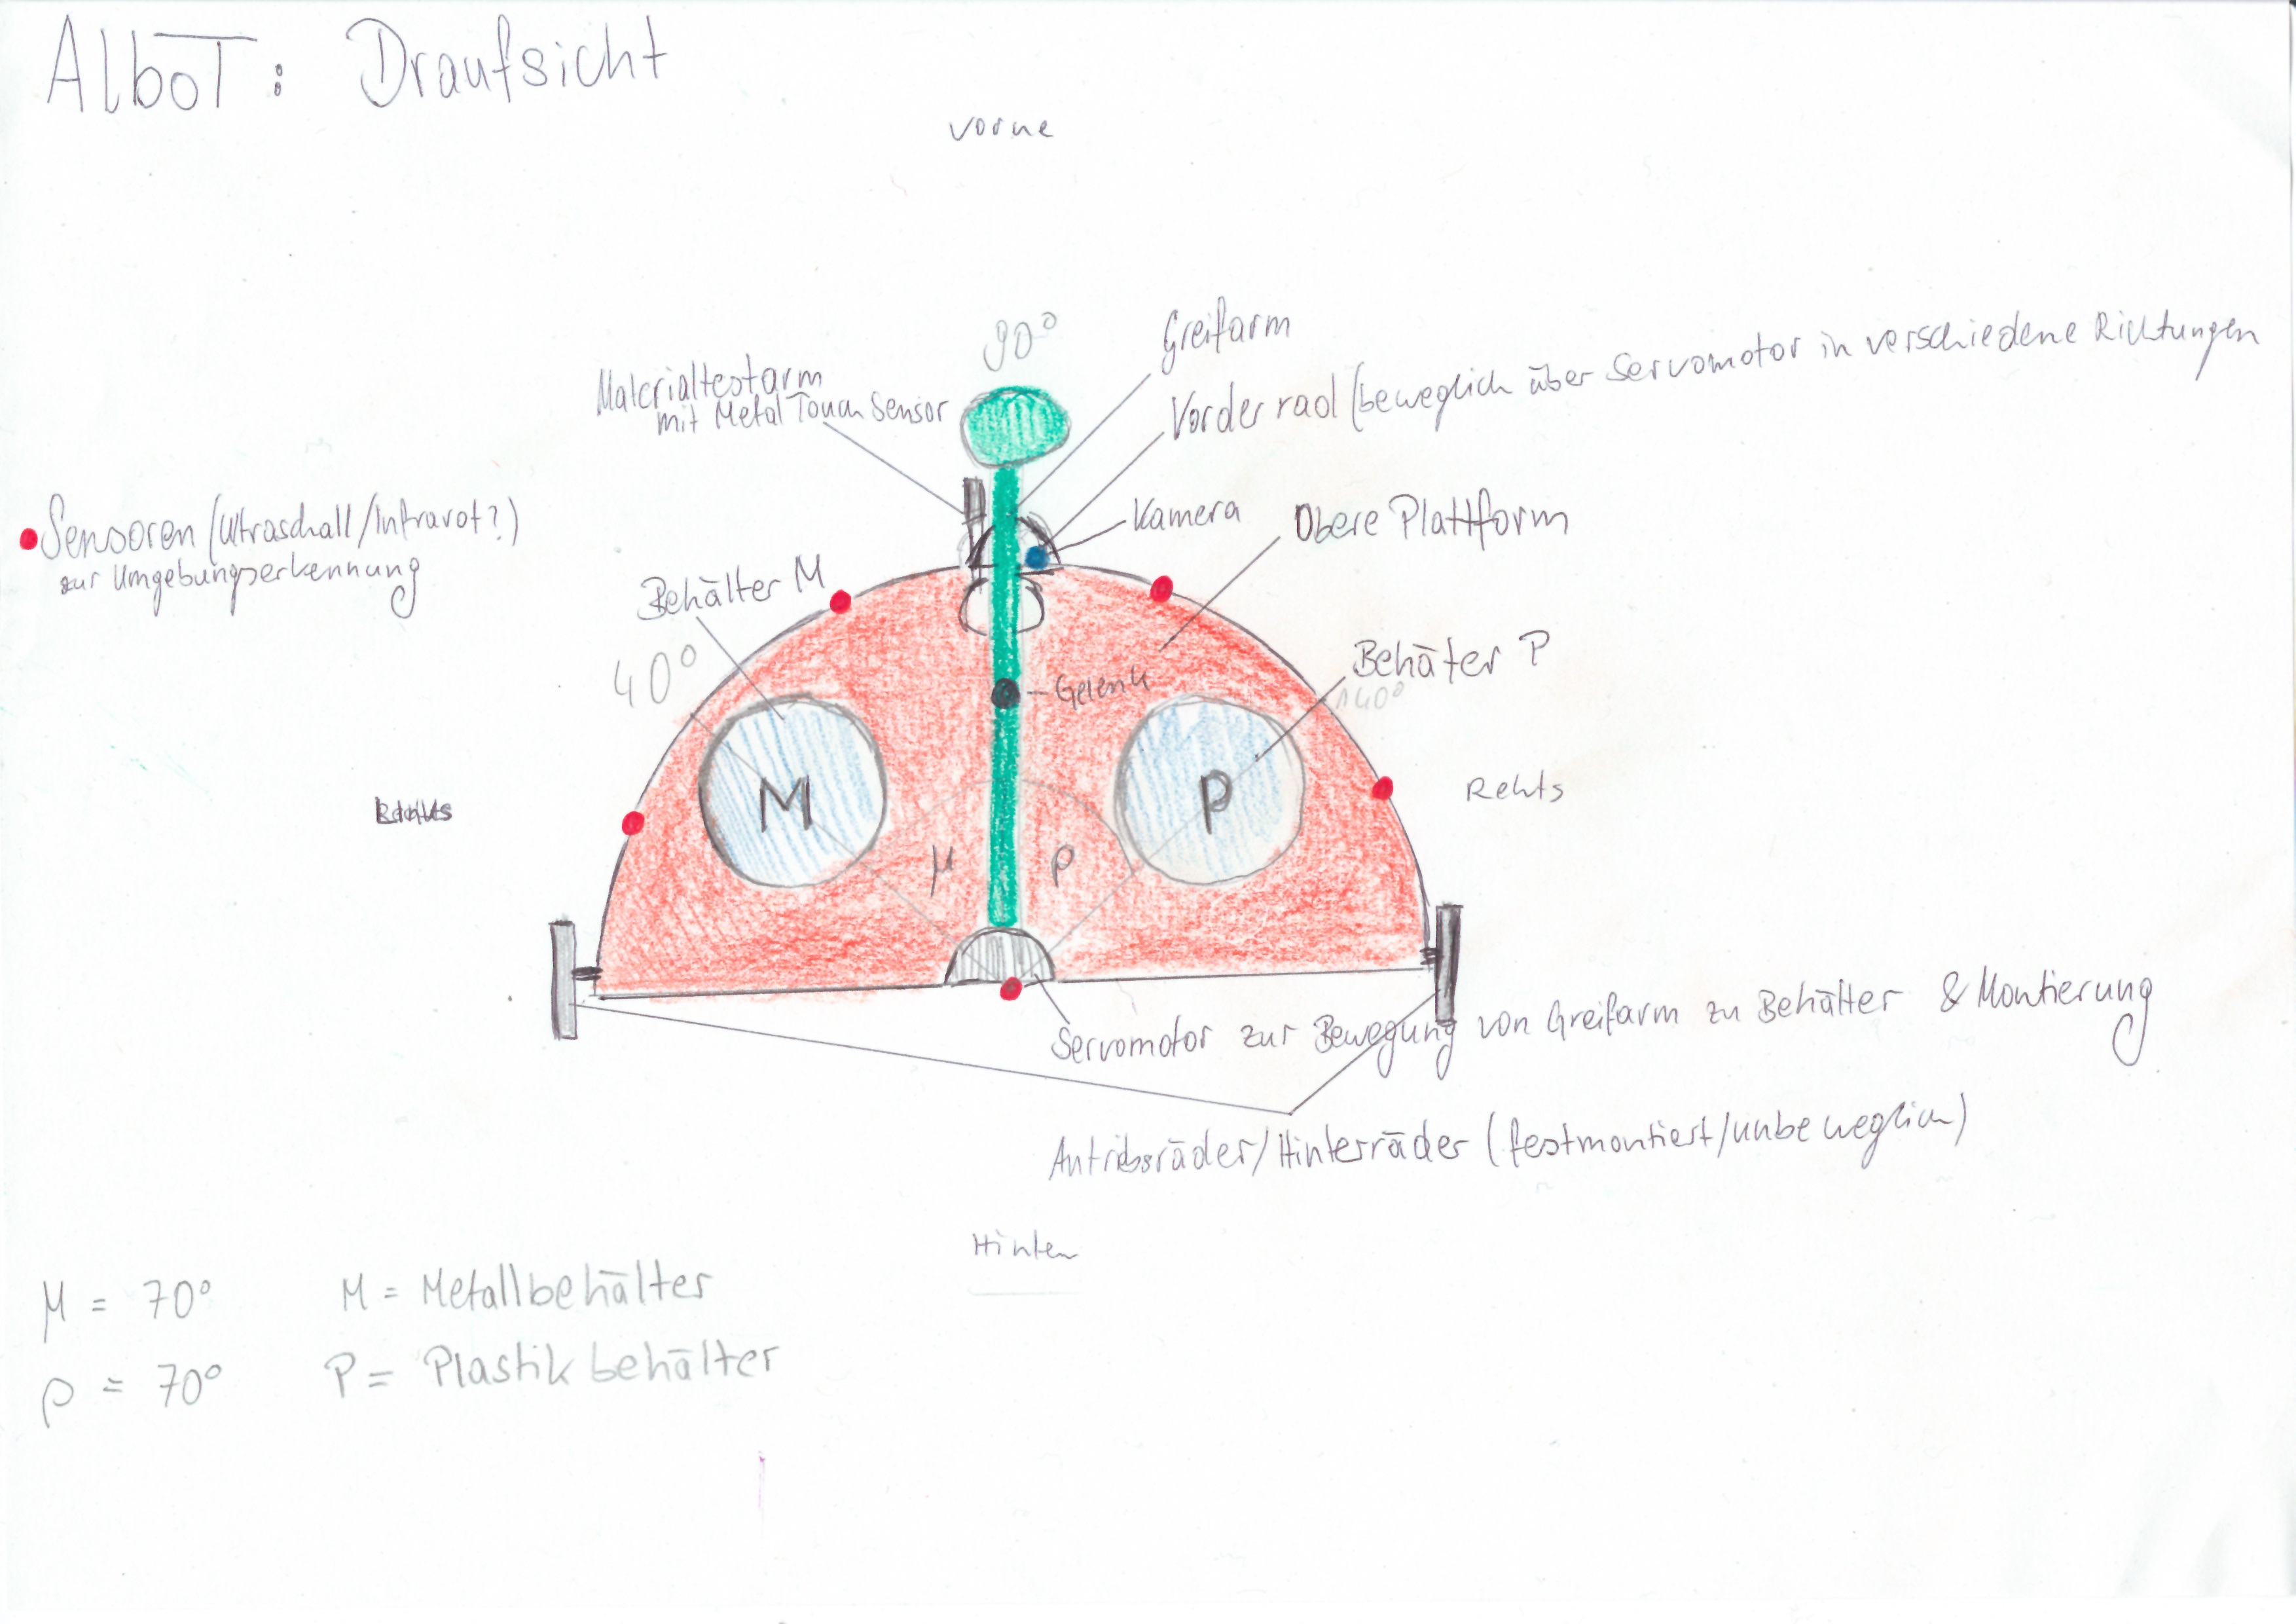 AlboT: Draufsicht
vorne
90°
Greifarm
Materialtestarm
mit Metal Touch Sensor
Vorderrad (beweglich über Servomotor in verschiedene Richtungen
Kamera
Obere Plattform
Sensoren (Ultraschall/Infrarot?)
zur Umgebungserkennung
Behälter M
Behäter P
40°
140°
Gelenk
M
P
Rehts
μ
ρ
Servomotor zur Bewegung von Greifarm zu Behälter & Montierung
Antribsräder/Hinterräder (festmontiert/unbeweglich)
Hinten
μ = 70°
M = Metallbehälter
ρ = 70°
P = Plastikbehälter